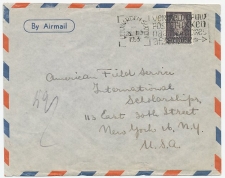 By Airmail
American Field Service
International
Scholarships
113 East 30th Street
New York 16, N.Y.
U.S.A